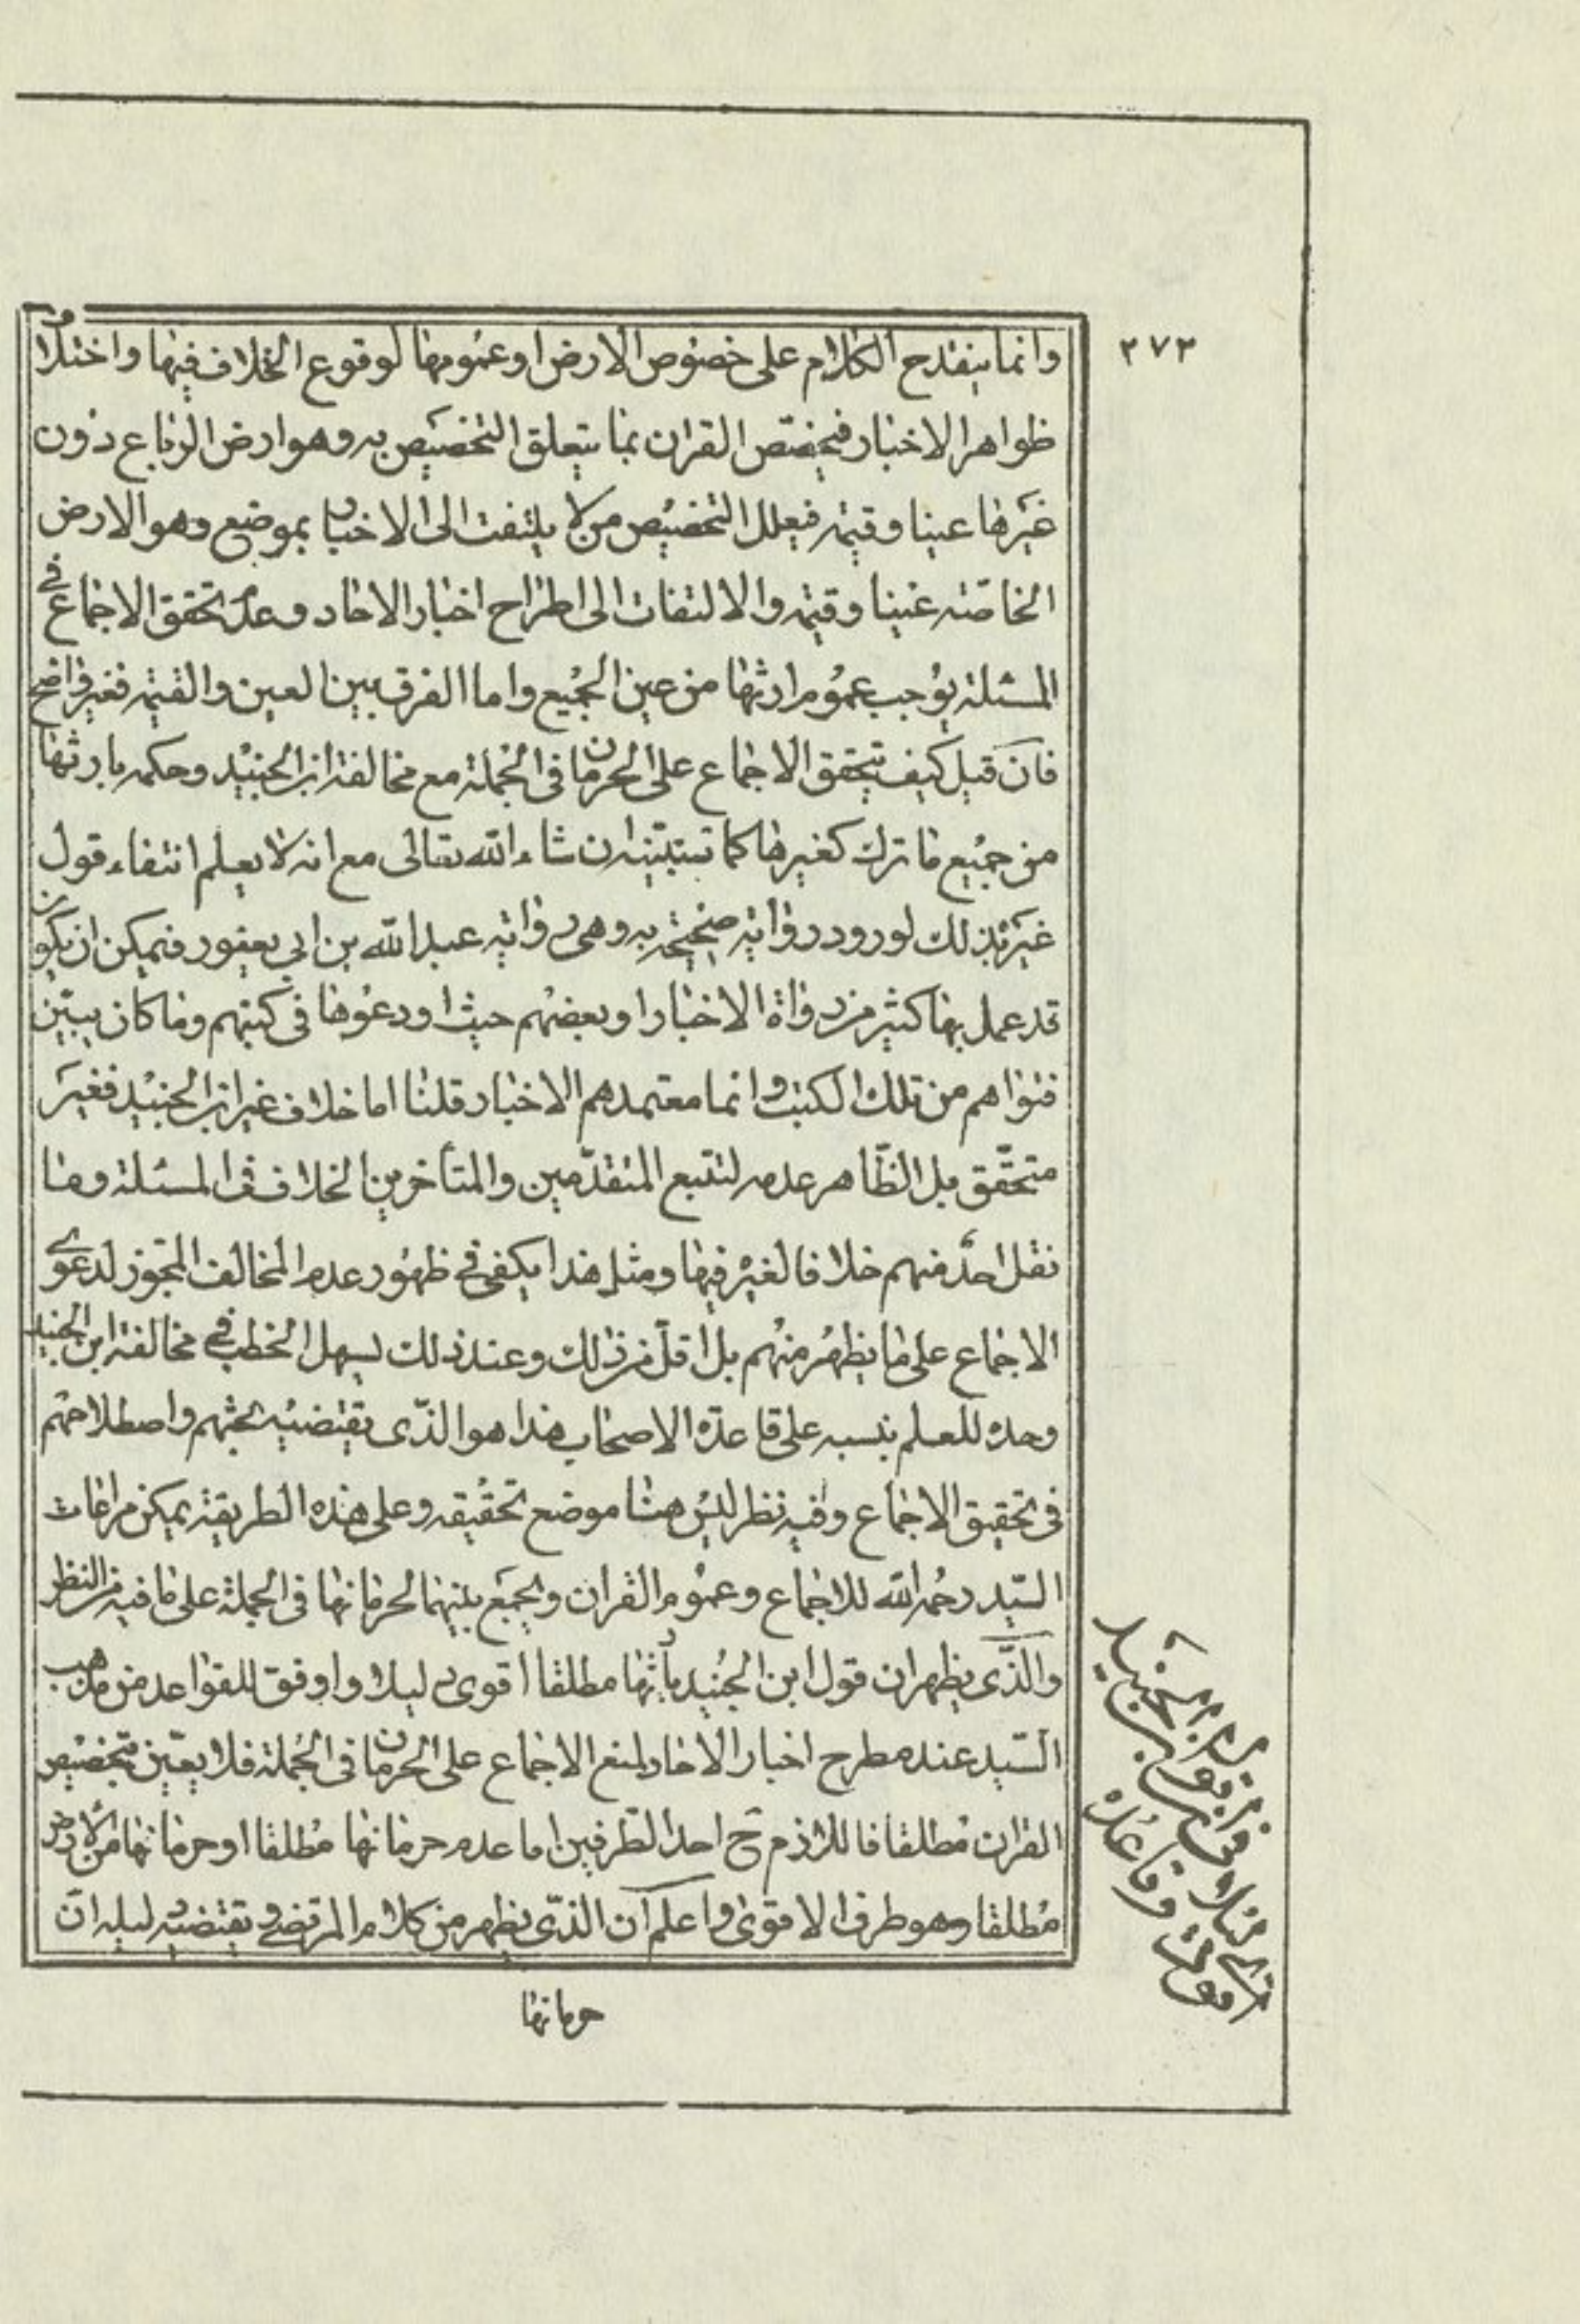 ٢٧٣
وانما ينقدح الكلام على خصوص الارض او عمومها لوقوع الخلاف فيها واختلاف
ظواهر الاخبار فيختص القران بما يتعلق التخصيص به وهو ارض الرباع دون
غيرها عينا وقيمة فيعلل التخصيص من لا يلتفت الى الاخبار بموضع وهو الارض
الخاصة عينا وقيمة والالتفات الى اطراح اخبار الاحاد وعدم تحقق الاجماع في
المسئلة يوجب عموم ارثها من عين الجميع واما الفرق بين العين والقيمة فغير واضح
فان قيل كيف تحقق الاجماع على الحرمان في الجملة مع مخالفة ابن الجنيد وحكمه بارثها
من جميع ما ترك كغيرها كما تبينه ان شاء الله تعالى مع انه لا يعلم انتفاء قول
غيره بذلك لورود رواية صحيحة به وهي رواية عبد الله بن ابي يعفور فيمكن ان يكون
قد عمل بها كثير من رواة الاخبار او بعضهم حيث اودعوها في كتبهم وما كان يتبين
فتواهم من تلك الكتب وانما معتمدهم الاخبار قلنا اما خلاف غير ابن الجنيد فغير
متحقق بل الظاهر عدمه لتتبع المتقدمين والمتأخرين الخلاف في المسئلة وما
نقل احد منهم خلافا لغيره فيها ومثل هذا يكفي في ظهور عدم المخالف المجوز لدعوى
الاجماع على ما يظهر منهم بل اقل من ذلك وعند ذلك يسهل الخطب في مخالفة ابن الجنيد
وحده للعلم بنسبه على قاعدة الاصحاب هذا هو الذي يقتضيه بحثهم واصطلاحهم
في تحقيق الاجماع وفيه نظر ليس هنا موضع تحقيقه وعلى هذه الطريقة يمكن مراعات
السيد رحمه الله للاجماع وعموم القران والجمع بينهما لحرمانها في الجملة على ما فيه من النظر
والذي يظهر ان قول ابن الجنيد بارثها مطلقا اقوى دليلا واوفق للقواعد من مذهب
السيد عند مطرح اخبار الاحاد لمنع الاجماع على الحرمان في الجملة فلا يتعين تخصيص
القران مطلقا فاللازم ح احد الطرفين اما عدم حرمانها مطلقا او حرمانها من الارض
مطلقا وهو طرف الاقوى واعلم ان الذي يظهر من كلام المرتضى ويقتضيه دليله ان
حرمانها